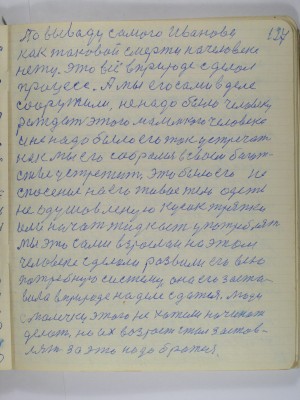 По выводу самого Иванова 124
как таковой смерти на человеке
нету. Это всё в природе сделал
процесс. А мы его сами в деле
сооружили, не надо было человеку
рождать этого маленького человека
и не надо было его так устречать
как мы его собрались в своём
устретить это было его не
спасение на его живое тело одеть
не одушовленую кусок тряпки
или начать жидкость употреблять
мы это сами взрослые на этом
человеке сделали развили его всю
потребную систему она его заста-
вила в природе на деле сдатся. Люди
с молочка этого не хотели начинать
делать, но их возраст стал застав-
лять за это надо братся.